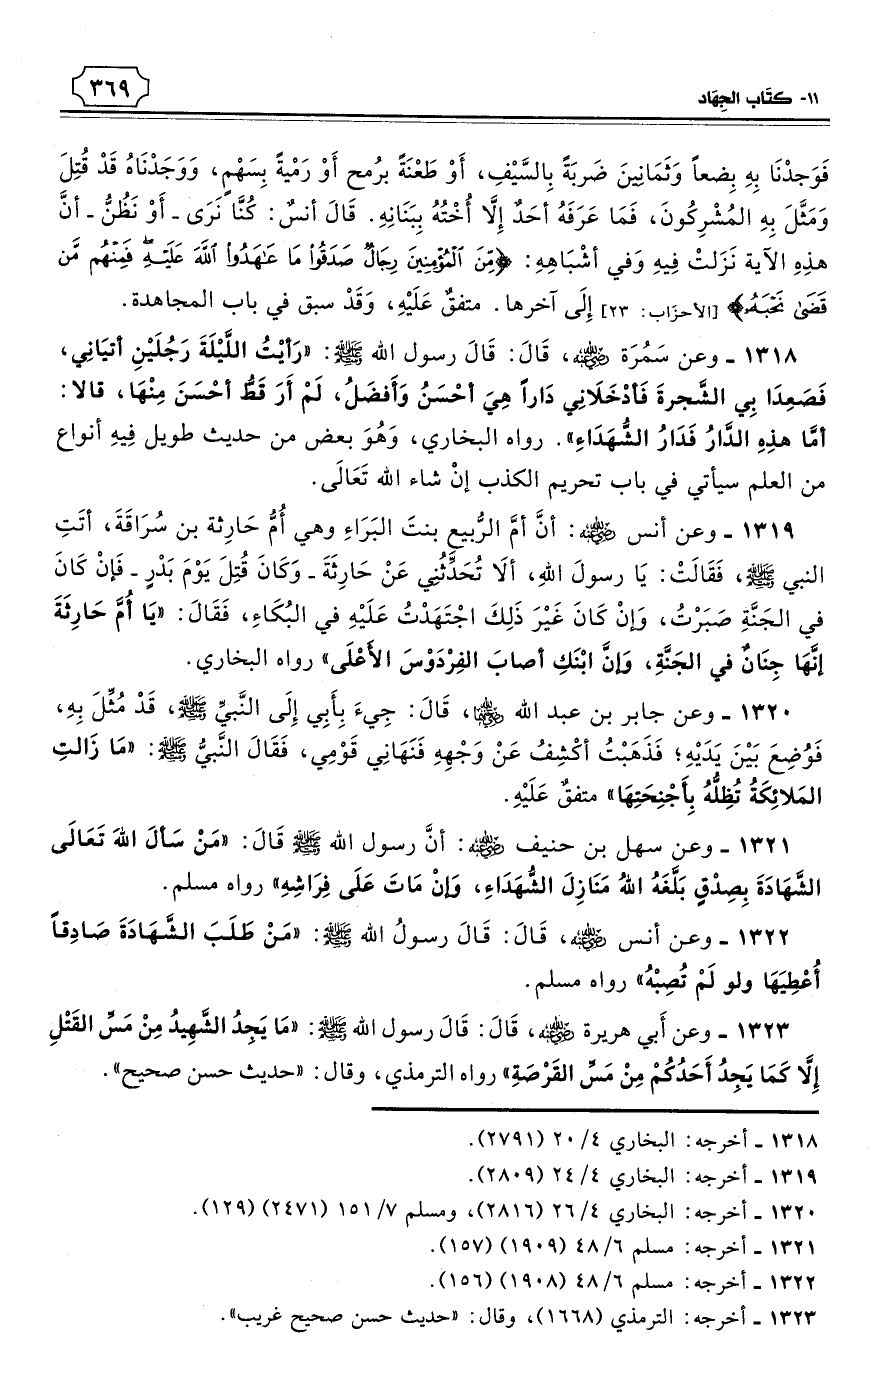 ١١- كتَاب الجِهَاد
٣٦٩
فَوَجِدْنَا بِهِ بِضعاً وَثَمَانِينَ ضَربَةً بِالسَّيْفِ، أَوْ طَعْنَةً بِرُمح أَوْ رَمْيةً بِسَهْمٍ، وَوَجَدْنَاهُ قَدْ قُتِلَ
وَمَثَّلَ بِهِ المُشْرِكُونَ، فَمَا عَرَفَهُ أحَدٌ إلَّا أُخْتُهُ بِبَنَانِهِ. قَالَ أنسٌ: كُنَّا نَرَى ـ أَوْ نَظُنُّ ـ أنَّ
هذِهِ الآية نَزَلتْ فِيهِ وَفي أشْبَاهِهِ: ﴿مِّنَ ٱلْمُؤْمِنِينَ رِجَالٌ صَدَقُوا۟ مَا عَـٰهَدُوا۟ ٱللَّهَ عَلَيْهِ ۖ فَمِنْهُم مَّن
قَضَىٰ نَحْبَهُۥ﴾ [الأحزَاب: ٢٣] إِلَى آخرها. متفقٌ عَلَيْهِ، وَقَدْ سبق في باب المجاهدة.
١٣١٨ ـ وعن سَمُرَة رضي الله عنه، قَالَ: قَالَ رسول الله ﷺ: «رَأيْتُ اللَّيْلَةَ رَجُلَيْنِ أتيَاني،
فَصَعِدَا بِي الشَّجرةَ فَأدْخَلَاني دَاراً هِيَ أحْسَنُ وَأَفضَلُ، لَمْ أرَ قَطُّ أحْسَنَ مِنْهَا، قالا:
أمَّا هذِهِ الدَّارُ فَدَارُ الشُّهَدَاءِ». رواه البخاري، وَهُوَ بعض من حديث طويل فِيهِ أنواع
من العلم سيأتي في باب تحريم الكذب إنْ شاء الله تَعَالَى.
١٣١٩ ـ وعن أنس رضي الله عنه: أنَّ أمَّ الرُّبيع بنتَ البَرَاءِ وهي أُمُّ حَارِثة بن سُرَاقَةَ، أتَتِ
النبي ﷺ، فَقَالَتْ: يَا رسولَ اللهِ، ألَا تُحَدِّثُنِي عَنْ حَارِثَةَ ـ وَكَانَ قُتِلَ يَوْمَ بَدْرٍ ـ فَإنْ كَانَ
في الجَنَّةِ صَبَرْتُ، وَإنْ كَانَ غَيْرَ ذَلِكَ اجْتَهَدْتُ عَلَيْهِ في البُكَاءِ، فَقَالَ: «يا أُمَّ حَارِثَةَ
إنَّهَا جِنَانٌ في الجَنَّةِ، وَإنَّ ابْنَكِ أصابَ الفِرْدَوْسَ الأَعْلَى» رواه البخاري.
١٣٢٠ ـ وعن جابر بن عبد الله رضي الله عنهما، قَالَ: جِيءَ بِأَبِي إِلَى النَّبيِّ ﷺ، قَدْ مُثِّلَ بِهِ،
فَوُضِعَ بَيْنَ يَدَيْهِ؛ فَذَهَبْتُ أكْشِفُ عَنْ وَجْهِهِ فَنَهَاني قَوْمِي، فَقَالَ النَّبيُّ ﷺ: «مَا زَالتِ
المَلائِكَةُ تُظِلُّهُ بِأَجْنِحَتِهَا» متفقٌ عَلَيْهِ.
١٣٢١ ـ وعن سهل بن حنيف رضي الله عنه: أنَّ رسول الله ﷺ قَالَ: «مَنْ سَألَ اللهَ تَعَالَى
الشَّهَادَةَ بِصِدْقٍ بَلَّغَهُ اللهُ مَنَازِلَ الشُّهَدَاءِ، وَإنْ مَاتَ عَلَى فِرَاشِهِ» رواه مسلم.
١٣٢٢ ـ وعن أنس رضي الله عنه، قَالَ: قَالَ رسولُ الله ﷺ: «مَنْ طَلَبَ الشَّهَادَةَ صَادِقاً
أُعْطِيَهَا ولو لَمْ تُصِبْهُ» رواه مسلم.
١٣٢٣ ـ وعن أبي هريرة رضي الله عنه، قَالَ: قَالَ رسول الله ﷺ: «مَا يَجِدُ الشَّهِيدُ مِنْ مَسِّ القَتْلِ
إلَّا كَمَا يَجِدُ أَحَدُكُمْ مِنْ مَسِّ القَرْصَةِ» رواه الترمذي، وقال: «حديث حسن صحيح».
١٣١٨ ـ أخرجه: البخاري ٢٠/٤ (٢٧٩١).
١٣١٩ ـ أخرجه: البخاري ٢٤/٤ (٢٨٠٩).
١٣٢٠ ـ أخرجه: البخاري ٢٦/٤ (٢٨١٦)، ومسلم ١٥١/٧ (٢٤٧١) (١٢٩).
١٣٢١ ـ أخرجه: مسلم ٤٨/٦ (١٩٠٩) (١٥٧).
١٣٢٢ ـ أخرجه: مسلم ٤٨/٦ (١٩٠٨) (١٥٦).
١٣٢٣ ـ أخرجه: الترمذي (١٦٦٨)، وقال: «حديث حسن صحيح غريب».